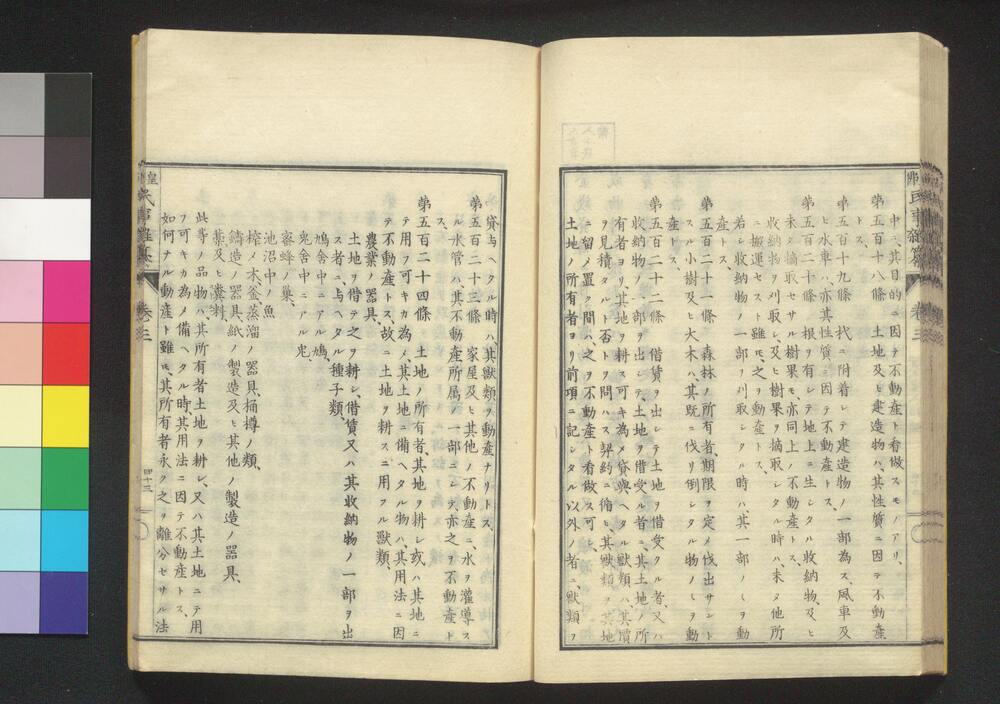 中ニ、其目的ニ因テ不動産ト看做スモノアリ、
第五百十八條　土地及ヒ建造物ハ、其性質ニ因テ不動産
ト
第五百十九條　杙ニ附着シテ建造物ノ一部為ス、風車及
ヒ水車ハ、亦其性質ニ因テ不動産トス、
第五百二十條　根ヲ有シテ地上ニ生シタハ收納物、及ヒ
未タ摘取セサル樹果モ、亦同上ノ不動産トス、
收納物ヲ刈取シ、及ヒ樹果ヲ摘取シタル時ハ、未タ他所
ニ搬運セスト雖モ、之ヲ動産トス、
若シ收納物ノ一部ヲ刈取シタル時ハ、其一部ノミヲ動
産トス、
第五百二十一條　森林ノ所有者、期限ヲ定メ伐出サント
スル小樹及ヒ大木ハ、其既ニ伐リ倒シタル物ノミヲ動
産トス、
第五百二十二條　借賃ヲ出シテ土地ヲ借受クル者、又ハ
收納物ノ一部ヲ出シテ、土地ヲ借受ル者ニ、其土地ノ所
有者ヨリ、其地ヲ耕ス可キ為メ貸與ヘタル獸類ハ、其價
ヲ見積タルト否トヲ問ハス、契約ニ循ヒ、其獸類ヲ其地
ニ留メ置ク間ハ、之ヲ不動産ト看做ス可シ、
土地ノ所有者ヨリ前項ニ記シタル以外ノ者ニ、獸類ヲ
貸与ヘタル時ハ、其獸類ヲ動産ナリトス、
第五百二十三條　家屋及ヒ其他ノ不動産ニ水ヲ灌導ス
ル水管ハ、其不動産所属ノ一部ニシテ、亦之ヲ不動産ト
ス、
第五百二十四條　土地ノ所有者、其地ヲ耕シ或ハ其地ニ
テ用フ可キカ為メ、其土地ニ備ヘタル物ハ、其用法ニ因
テ不動産トス、故ニ土地ヲ耕スニ用フル獸類、
農業ノ器具、
土地ヲ借テ之ヲ耕シ、借賃又ハ其收納物ノ一部ヲ出
ス者ニ、与ヘタル種子類、
鳩舎中ニアル鳩、
兎舎中ニアル兎、
蜜蜂ノ巣、
池沼中ノ魚
榨ノ木、釜蒸溜ノ器具、桶樽ノ類、
鑄造ノ器具、紙ノ製造及ヒ其他ノ製造ノ器具、
藁及ヒ糞料、
此等ノ品物ハ、其所有者土地ヲ耕シ、又ハ其土地ニテ用
フ可キカ為メ備ヘタル時、其用法ニ因テ不動産トス、
如何ナル動産ト雖モ、其所有者永ク之ヲ離分セサル法
卷三
四十三